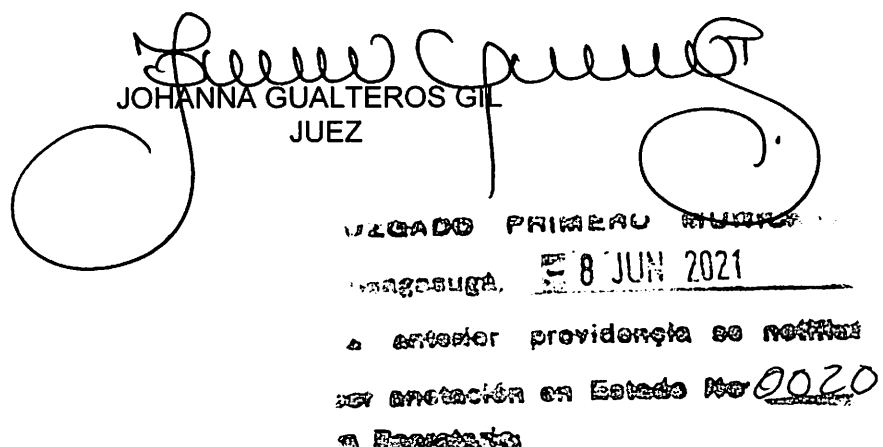 JOHANNA GUALTEROS GIL
JUEZ
PRIMERO
8 JUN 2021
anterior providencia se notifica
anotación en Estado No 0020